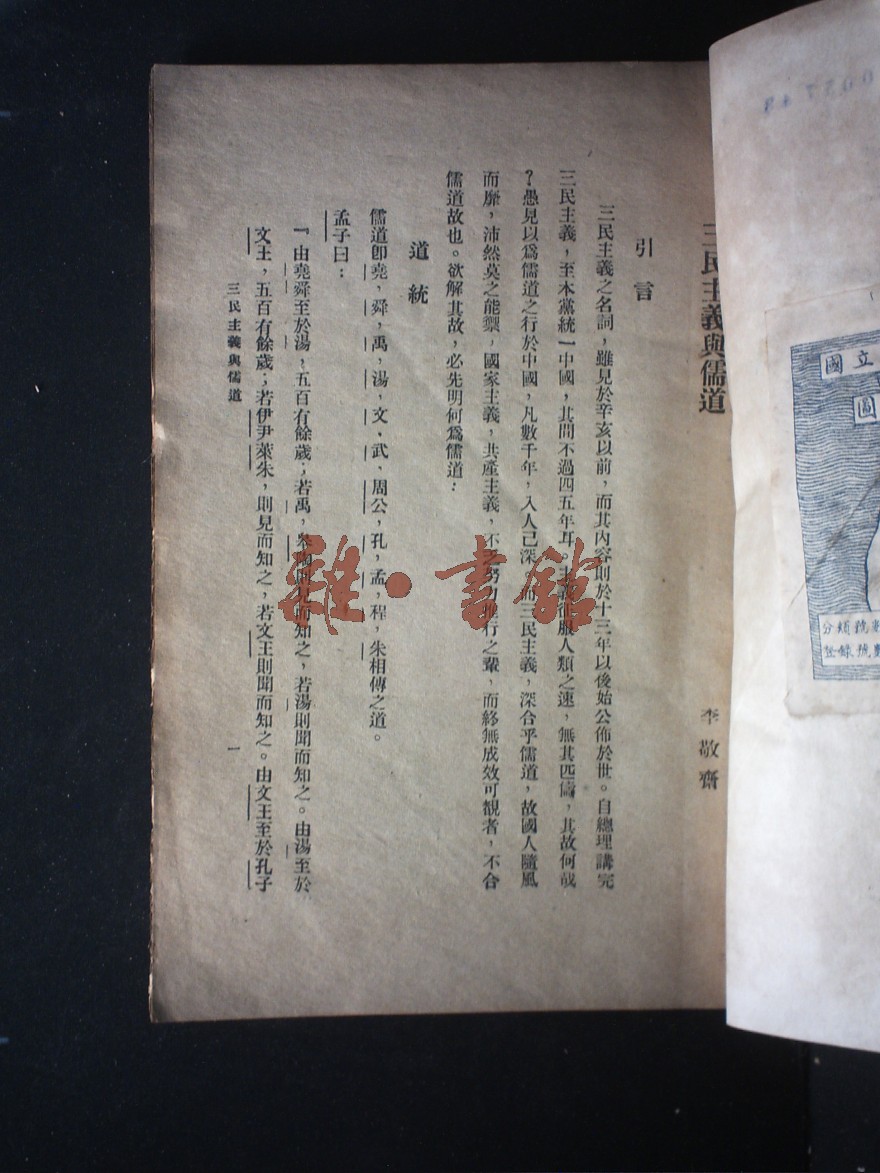 三民主義與儒道
李敬齋
引言
三民主義之名詞，雖見於辛亥以前，而其內容則於十三年以後始公佈於世。自總理講完
三民主義，至本黨統一中國，其間不過四五年耳。主義征服人類之速，無其匹儔，其故何哉
？愚見以爲儒道之行於中國，凡數千年，入人已深，而三民主義，深合乎儒道，故國人隨風
而靡，沛然莫之能禦，國家主義，共產主義，不乏努力推行之輩，而終無成效可觀者，不合
儒道故也。欲解其故，必先明何爲儒道：
道統
儒道卽堯，舜，禹，湯，文，武，周公，孔，孟，程，朱相傳之道。
孟子曰：
『由堯舜至於湯，五百有餘歲；若禹，皋陶則見而知之，若湯則聞而知之。由湯至於
文王，五百有餘歲；若伊尹萊朱，則見而知之，若文王則聞而知之。由文王至於孔子
三民主義與儒道
一
國立
圖
分類號
登錄號
雜·書館